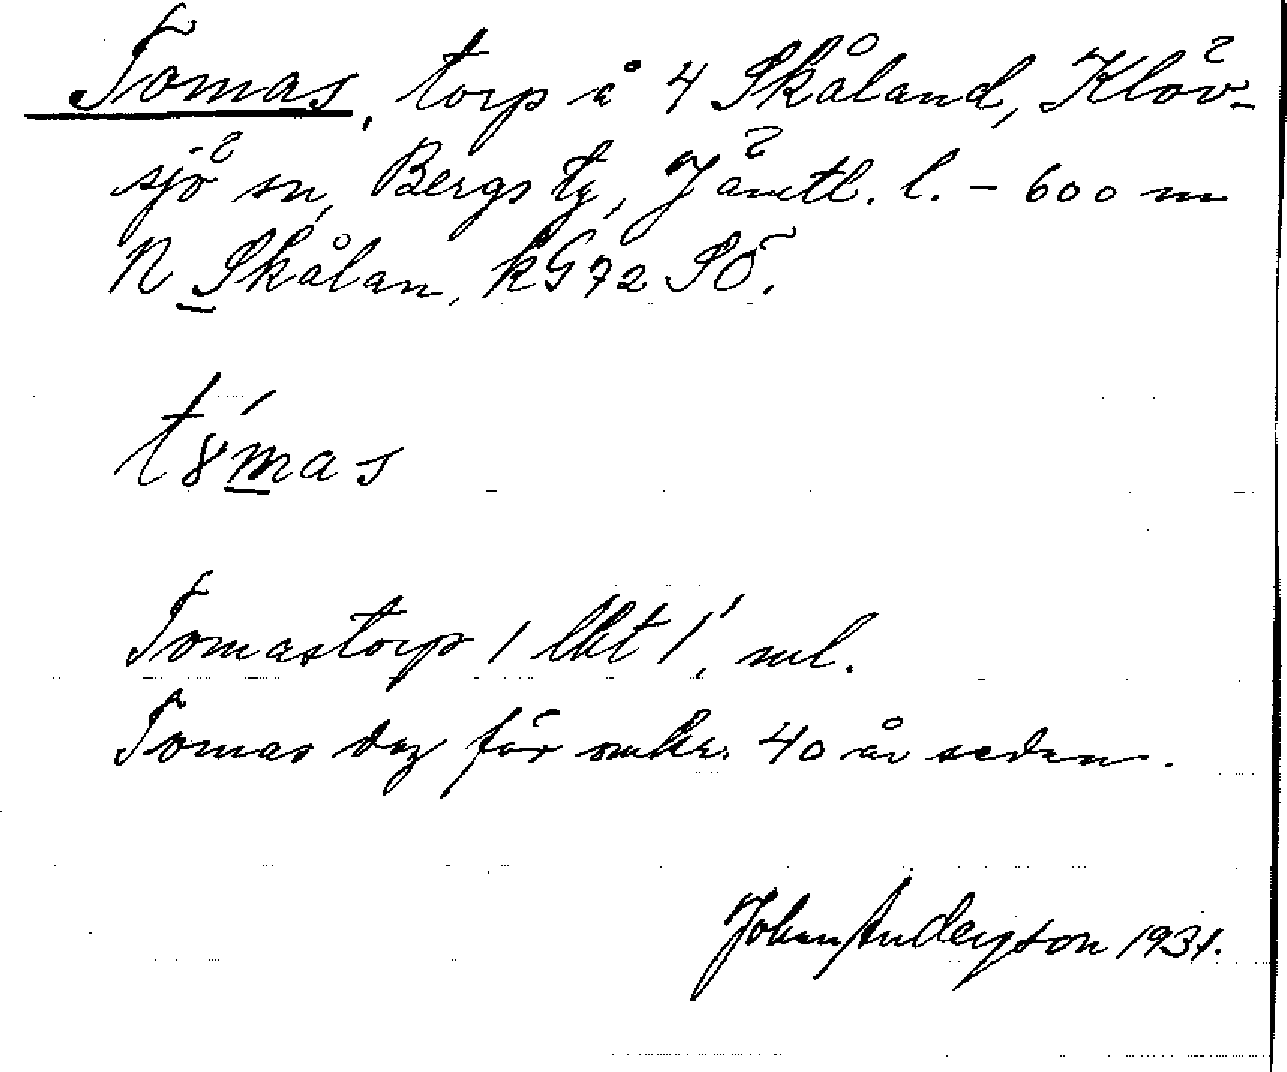 Tomas, torp å 4 Skåland, Klöv-
sjö sn, Bergs tg, Jämtl. l. - 600 m
N Skålan, kG72 SÖ.
t8́mas
Tomastorp / lkt /, ml.
Tomas dog för omkr. 40 år sedan.
Johan Anderzson 1931.